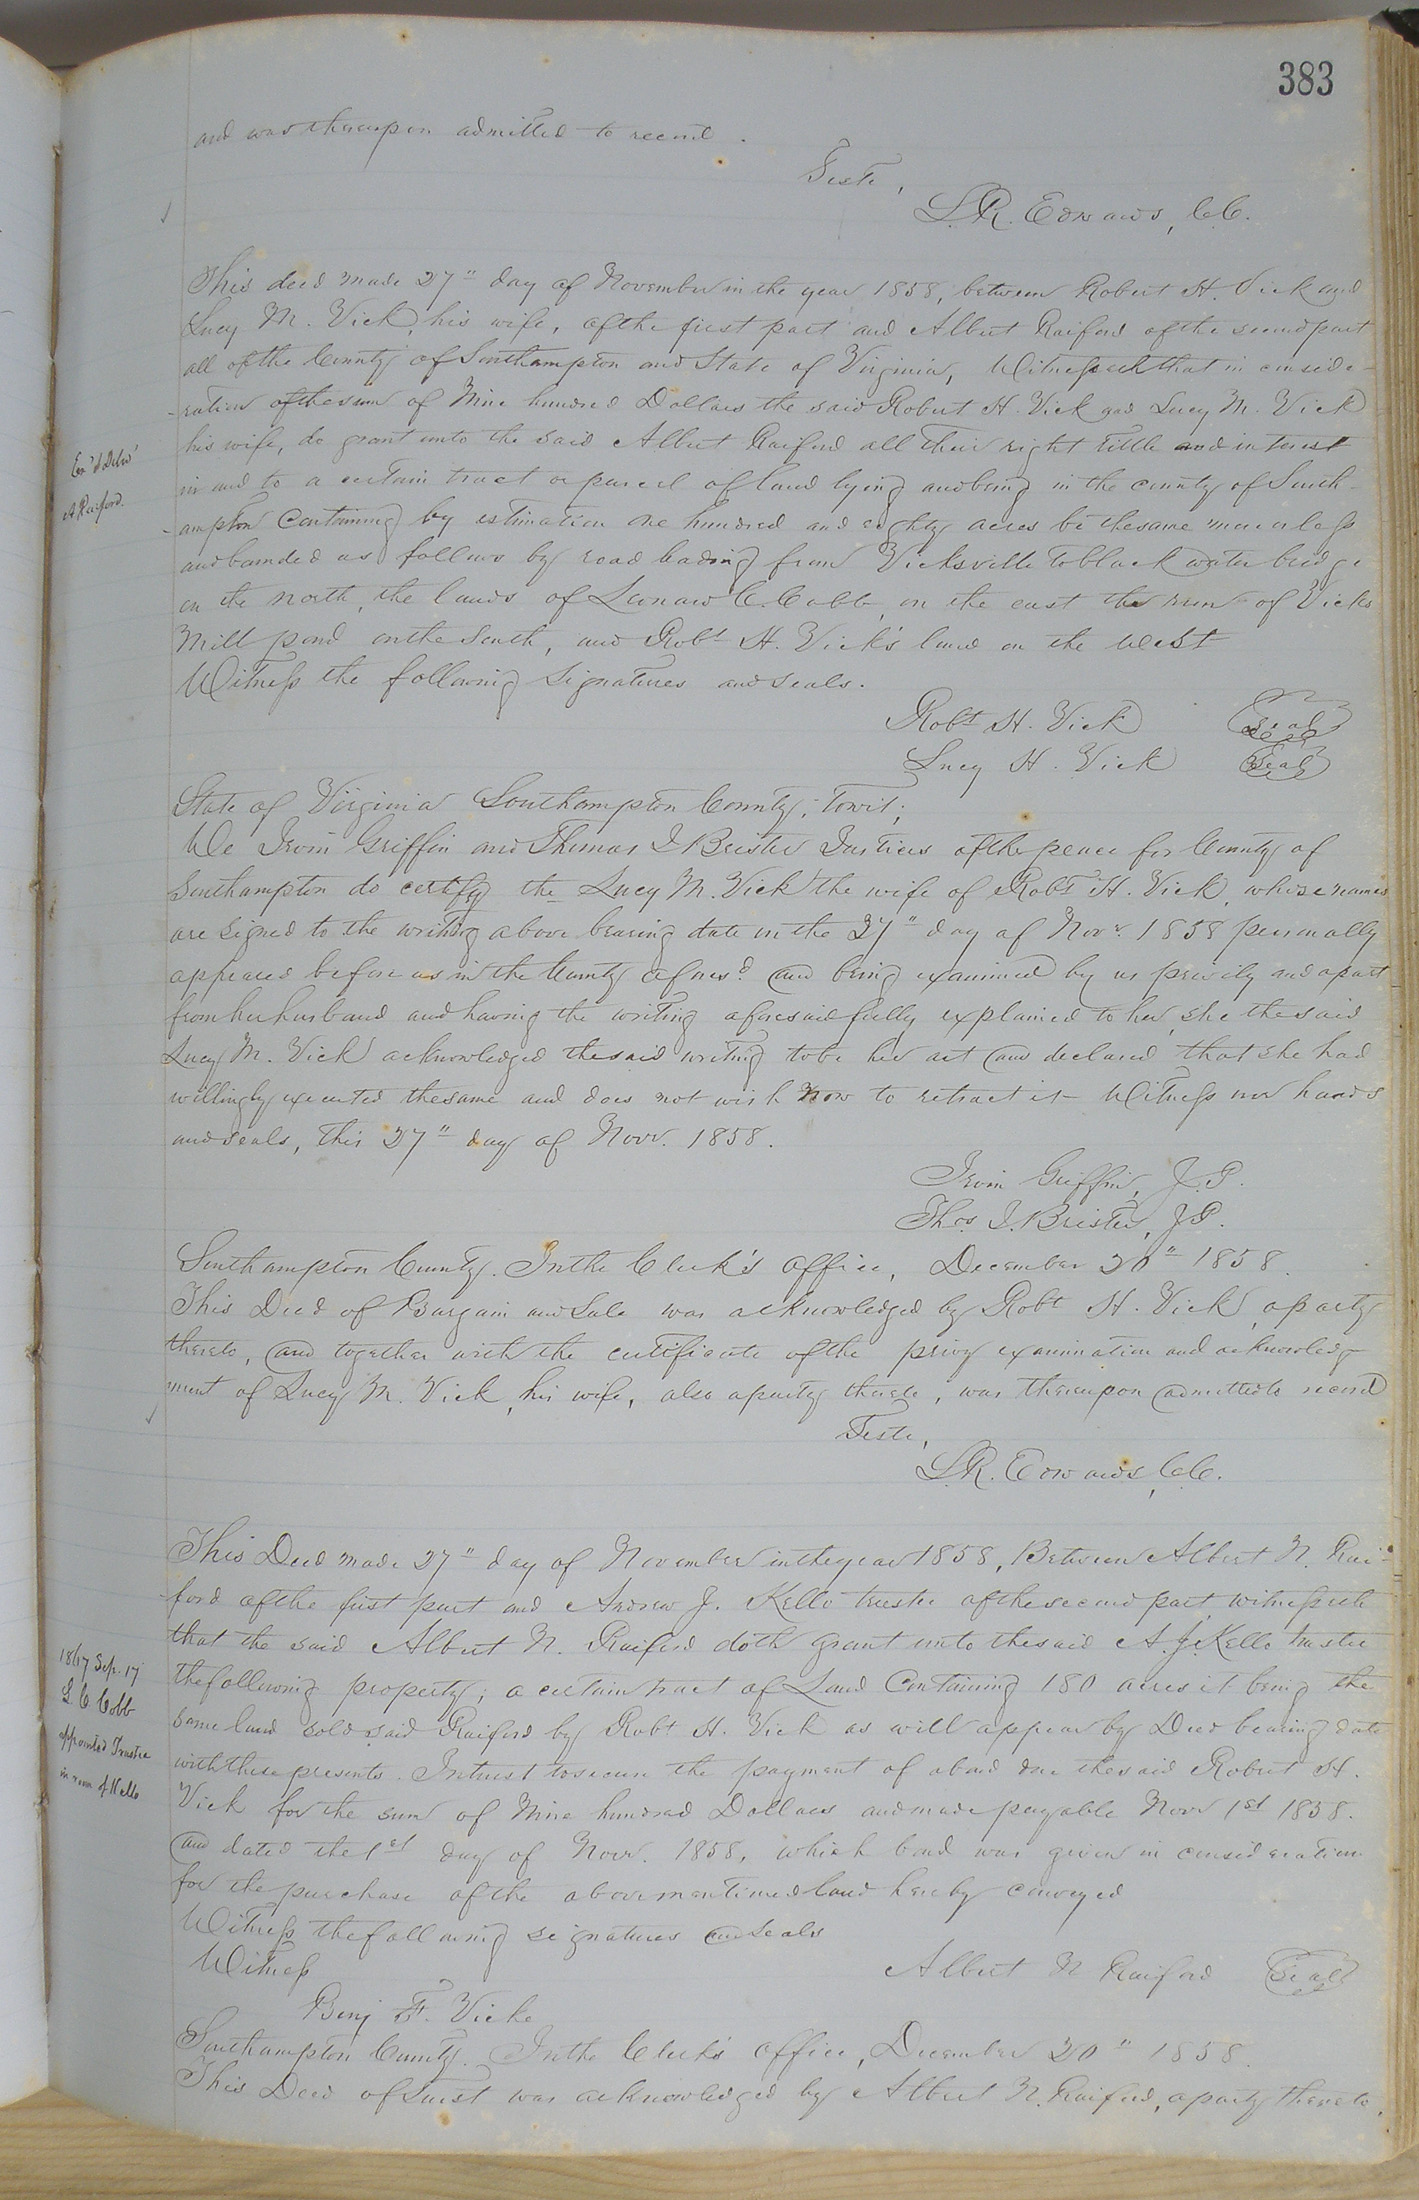 383
and was thereupon admitted to record.
Teste,
L.R. Edwards, C.C.
This deed made 27" day of November in the year 1858, between Robert H. Vick and
Lucy M. Vick, his wife, of the first part and Albert Raiford of the second part
all of the County of Southampton and State of Virginia, Witnesseth that in conside-
-ration of the sum of Nine hundred Dollars the said Robert H. Vick and Lucy M. Vick
his wife, do grant unto the said Albert Raiford all their right tittle and interest
in and to a certain tract or parcel of land lying and being in the county of South-
-ampton Containing by estimation one hundred and eighty acres be the same more or less
and bounded as follows by road leading from Vicksville to black water bridge
on the north, the lands of Leonard C. Cobb, on the east the run of Vicks
Mill pond on the South, and Robt H. Vick's land on the West
Witness the following Signatures and seals.
Ex'd & Deld
A Raiford.
Robt H. Vick Seal
Lucy H. Vick Seal
State of Virginia Southampton County, Towit;
We Irvin Griffin and Thomas I Brister Justices of the peace for County of
Southampton do certify the Lucy M. Vick the wife of Robt H. Vick, whose names
are signed to the writing above bearing date on the 27" day of Novr. 1858 personally
appeared before us in the County afores'd and being examined by us privily and apart
from her husband and having the writing aforesaid fully explained to her, she the said
Lucy M. Vick acknowledged the said writing to be her act and declared that she had
willingly executed the same and does not wish now to retract it Witness our hands
and seals, this 27" day of Novr. 1858.
Irvin Griffin, J.P.
Thos. I. Brister, J.P.
Southampton County. In the Clerk's office, December 20" 1858.
This Deed of Bargain and Sale was acknowledged by Robt H. Vick, a party
thereto, and together with the certificate of the privy examination and acknowledg-
ment of Lucy M. Vick, his wife, also a party thereto, was thereupon admitted to record
Teste,
L.R. Edwards, C.C.
This Deed made 27" day of November in the year 1858, Between Albert N. Rai-
-ford of the first part and Andrew J. Kello trustee of the second part, witnesseth
that the said Albert N. Raiford doth grant unto the said A.J. Kello trustee
the following property; a certain tract of Land Containing 180 acres it being the
same land sold said Raiford by Robt H. Vick as will appear by Deed bearing date
with these presents. In trust to secure the payment of a bond due the said Robert H.
Vick for the sum of Nine hundred Dollars and made payable Novr 1st 1858.
and dated the 1st day of Novr. 1858, which bond was given in consideration
for the purchase of the above mentioned land hereby conveyed
Witness the following signatures and seals
1867 Sep. 17
L. C Cobb
appointed Trustee
in room of Kello
Witness
Albert N Raiford Seal
Benj F. Vicke
Southampton County. In the Clerk's office, December 20" 1858.
This Deed of trust was acknowledged by Albert N. Raiford, a party thereto,